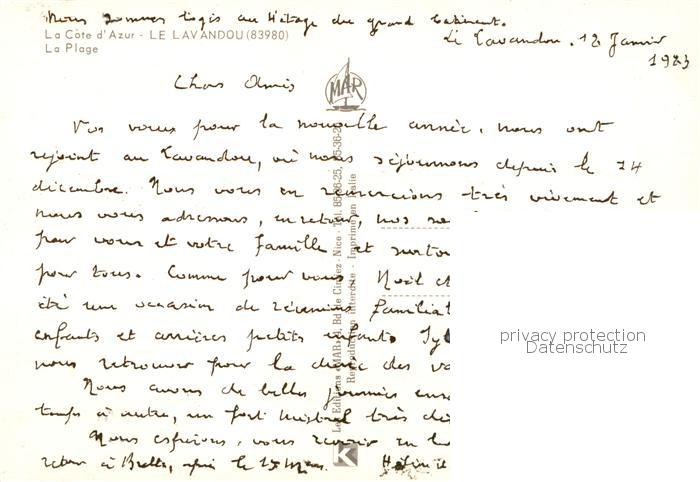 Nous sommes logés au 4e étage du grand bâtiment.
La Côte d'Azur - LE LAVANDOU (83980)
La Plage
Le Lavandou, 12 Janvier
1983
Chers Amis
MAR
Vos vœux pour la nouvelle année, nous ont
rejoint au Lavandou, où nous séjournons depuis le 14
décembre. Nous vous en remercions très vivement et
nous vous adressons, en retour, nos
pour vous et votre famille et surto
pour tous. Comme pour vous Noël et
été une occasion de réunions familial
enfants et arrières petits enfants
nous retrouver pour la des va
Nous avons de belles journées
temps à autre, un fort mistral très
Nous espérons, vous revoir en
retour à le 15 Mars.
Les Editions «MAR», Bd de Cimiez - Nice - Tél.
Reproduction interdite - Imprimé en Italie
K
privacy protection
Datenschutz